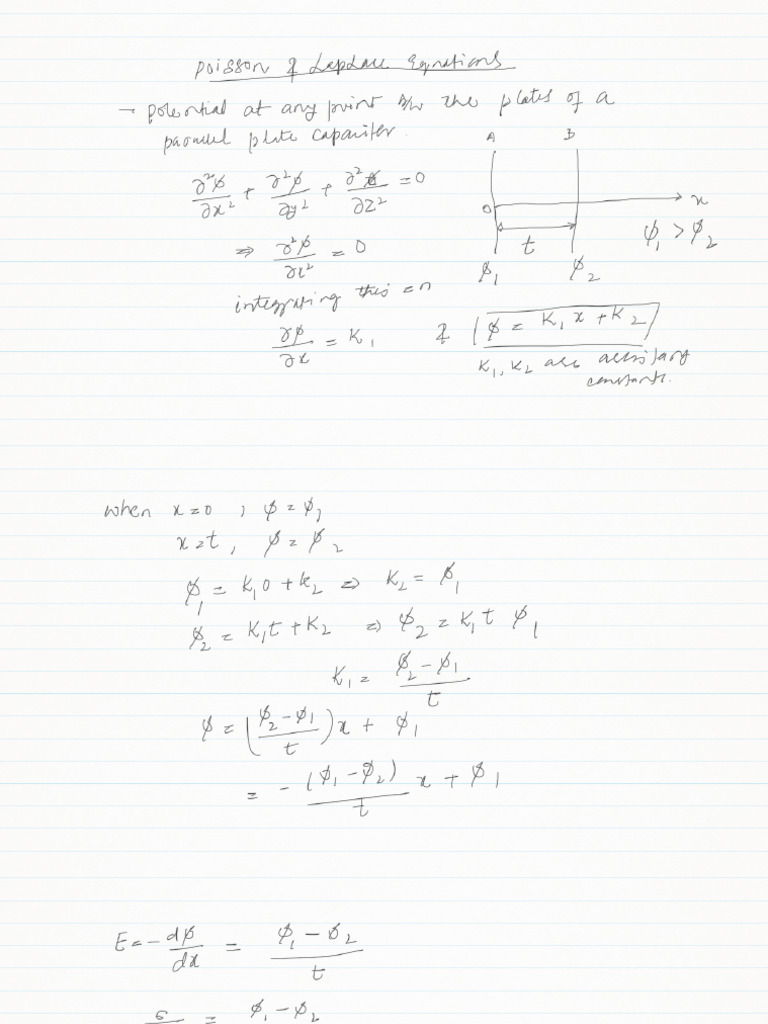 Poisson & Laplace Equations
→ Potential at any point b/w the plates of a
parallel plate capacitor.
A B
∂²ϕ/∂x² + ∂²ϕ/∂y² + ∂²ϕ/∂z² = 0
0 x
t
ϕ₁ > ϕ₂
⇒ ∂²ϕ/∂x² = 0
ϕ₁ ϕ₂
integrating this =n
∂ϕ/∂x = K₁ & ϕ = K₁x + K₂
K₁, K₂ are
constants.
when x=0 , ϕ = ϕ₁
x=t , ϕ = ϕ₂
ϕ₁ = K₁0 + K₂ ⇒ K₂ = ϕ₁
ϕ₂ = K₁t + K₂ ⇒ ϕ₂ = K₁t ϕ₁
K₁ = (ϕ₂ - ϕ₁)/t
ϕ = ((ϕ₂ - ϕ₁)/t)x + ϕ₁
= - (ϕ₁ - ϕ₂)/t x + ϕ₁
E = - dϕ/dx = (ϕ₁ - ϕ₂)/t
= ϕ₁ - ϕ₂